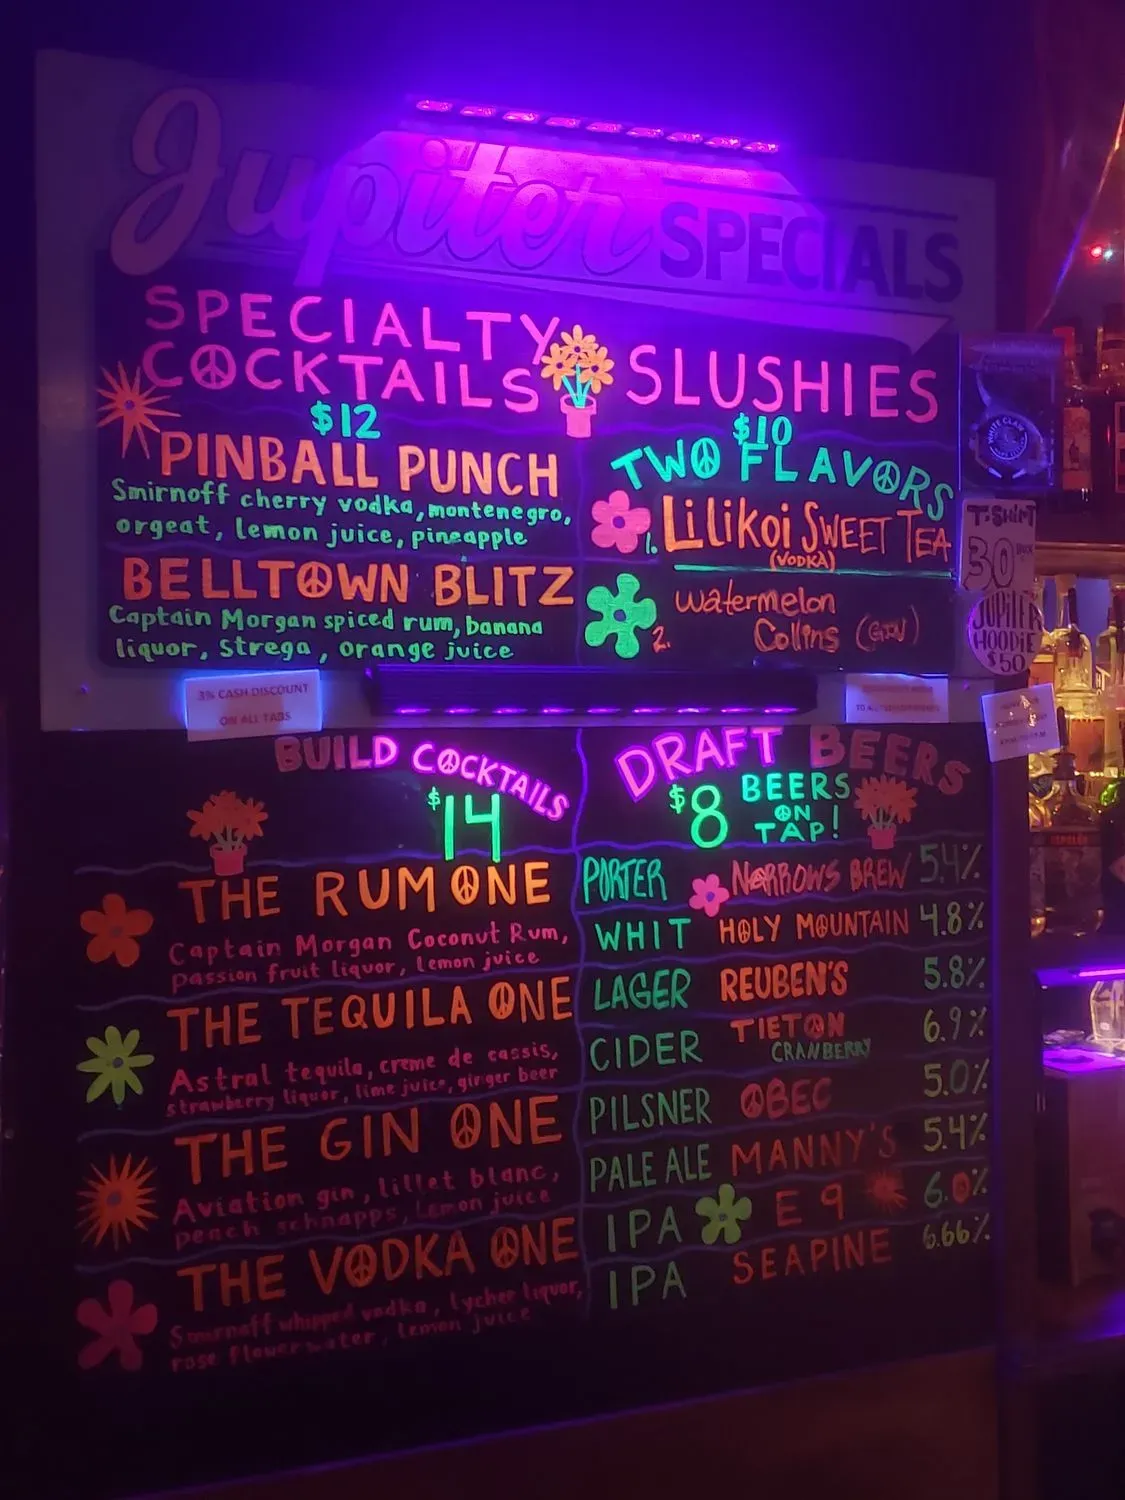 Jupiter SPECIALS
SPECIALTY
COCKTAILS
$12
PINBALL PUNCH
Smirnoff cherry vodka, montenegro,
orgeat, lemon juice, pineapple
BELLTOWN BLITZ
Captain Morgan spiced rum, banana
liquor, Strega, orange juice
SLUSHIES
$10
TWO FLAVORS
1. LiLikoi SWEET TEA
(VODKA)
2. Watermelon
Collins (GIN)
WHITE CLAW
T-SHIRT
30
JUPITER
HOODIE
$50
3% CASH DISCOUNT
ON ALL TABS
BUILD COCKTAILS
$14
THE RUM ONE
Captain Morgan Coconut Rum,
passion fruit liquor, lemon juice
THE TEQUILA ONE
Astral tequila, creme de cassis,
strawberry liquor, lime juice, ginger beer
THE GIN ONE
Aviation gin, lillet blanc,
peach schnapps, lemon juice
THE VODKA ONE
Smirnoff whipped vodka, lychee liquor,
rose flower water, lemon juice
DRAFT BEERS
$8 BEERS
ON
TAP!
PORTER NARROWS BREW 5.4%
WHIT HOLY MOUNTAIN 4.8%
LAGER REUBEN'S 5.8%
CIDER TIETON 6.9%
CRANBERRY
PILSNER OBEC 5.0%
PALE ALE MANNY'S 5.4%
IPA E9 6.0%
IPA SEAPINE 6.66%